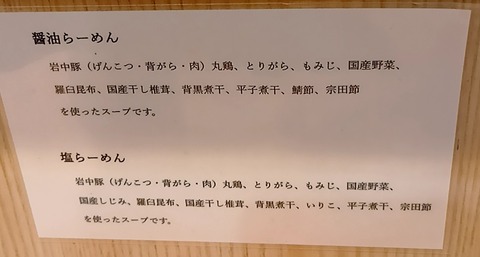 醤油らーめん
岩中豚（げんこつ・背がら・肉）丸鶏、とりがら、もみじ、国産野菜、
羅臼昆布、国産干し椎茸、背黒煮干、平子煮干、鯖節、宗田節
を使ったスープです。
塩らーめん
岩中豚（げんこつ・背がら・肉）丸鶏、とりがら、もみじ、国産野菜、
国産しじみ、羅臼昆布、国産干し椎茸、背黒煮干、いりこ、平子煮干、宗田節
を使ったスープです。